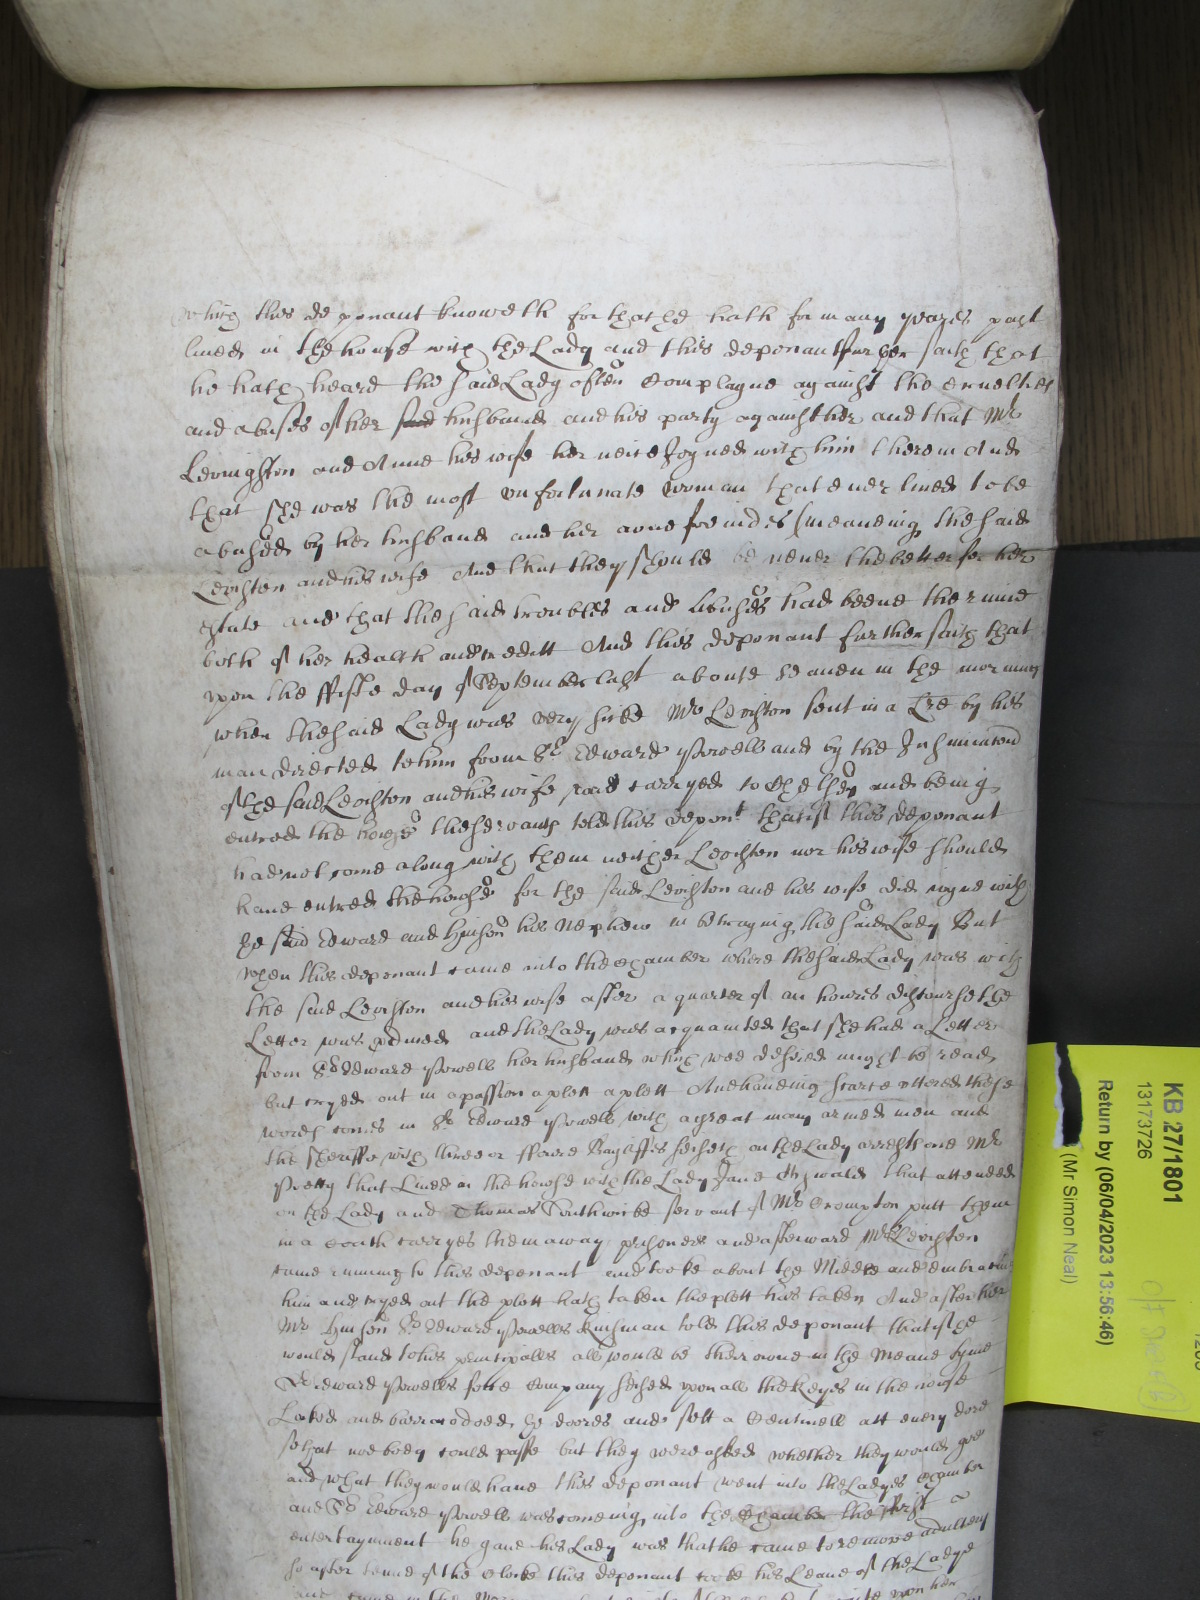 which this deponant knoweth for that he hath for many yeares past
lived in the house with the Lady and this deponant further saith that
he hath heard the said Lady often Complayne against the cruelties
and abuses of her said husband and his party against her and that Mr
Levingston and Anne his wife her neice Joyned with him therein And
that she was the most unfortunate woman that ever lived to be
abused by her husband and her owne freindes (meaneing the said
Levisten and his wife And that they should be never the better for her
estate and that the said troubles and abuses had beene the ruine
both of her health and Creditt And this deponant further saith that
upon the fifte day of September last aboute seaven in the morning
when the said Lady was very sicke Mr Levisten sent in a Lre by his
man directed to him from Sr Edward Powell and by the Insinuacon
of the said Levisten and his wife was carryed to Chelsey and being
entred the house the servants told this Depont that if this deponant
had not come along with them neither Levisten nor his wife should
have entred the house for the said Levisten and his wife did joyne with
the said Edward and Hinson his Nephew in betraying the said Lady But
when this deponant came into the Chamber where the said Lady was with
the said Levisten and his wife after a quarter of an howres discourse the
Letter was opened and the Lady was acquainted that she had a Letter
from Sr Edward Powell her husband which was desired might be read
but cryed out in a passion a plott a plott And haveing scarce uttered those
words comes in Sr Edward Powell with a great many armed men and
the sheriffe with three or ffoure Bayliffes seiseth on the Lady arrests one Mr
Pretty that Lived in the howse with the Lady Jane that attended
on the Lady and Thomas Southwicke servant of Mr Crompton putt them
in a Coach carryes them away prisoners and afterward Mrs Levisten
came running to this deponant and tooke about the Middle and embraceing
him and cryed out the plott hath taken the plott has taken And after her
Mr Hinson Sr Edward Powells Kinsman told this deponant that if he
would stand to his principalls all would be their owne in the Meane tyme
Sr Edward Powells fore Company seised upon all the Keyes in the house
Locked and barricadoed the doores and sett a Centinell att every dore
so that noe body could passe but they were asked whether they would goe
and what they would have this deponant went into the Ladyes Chamber
and Sr Edward Powell was comeing into the Chamber the first
entertaynment he gave his Lady was that he came to remove adultery
so after tenne of the Clocke this deponant tooke his Leave of the Ladye
and came in the
upon her
KB 27/1801
13173726
Return by (06/04/2023 13:56:46)
(Mr Simon Neal)